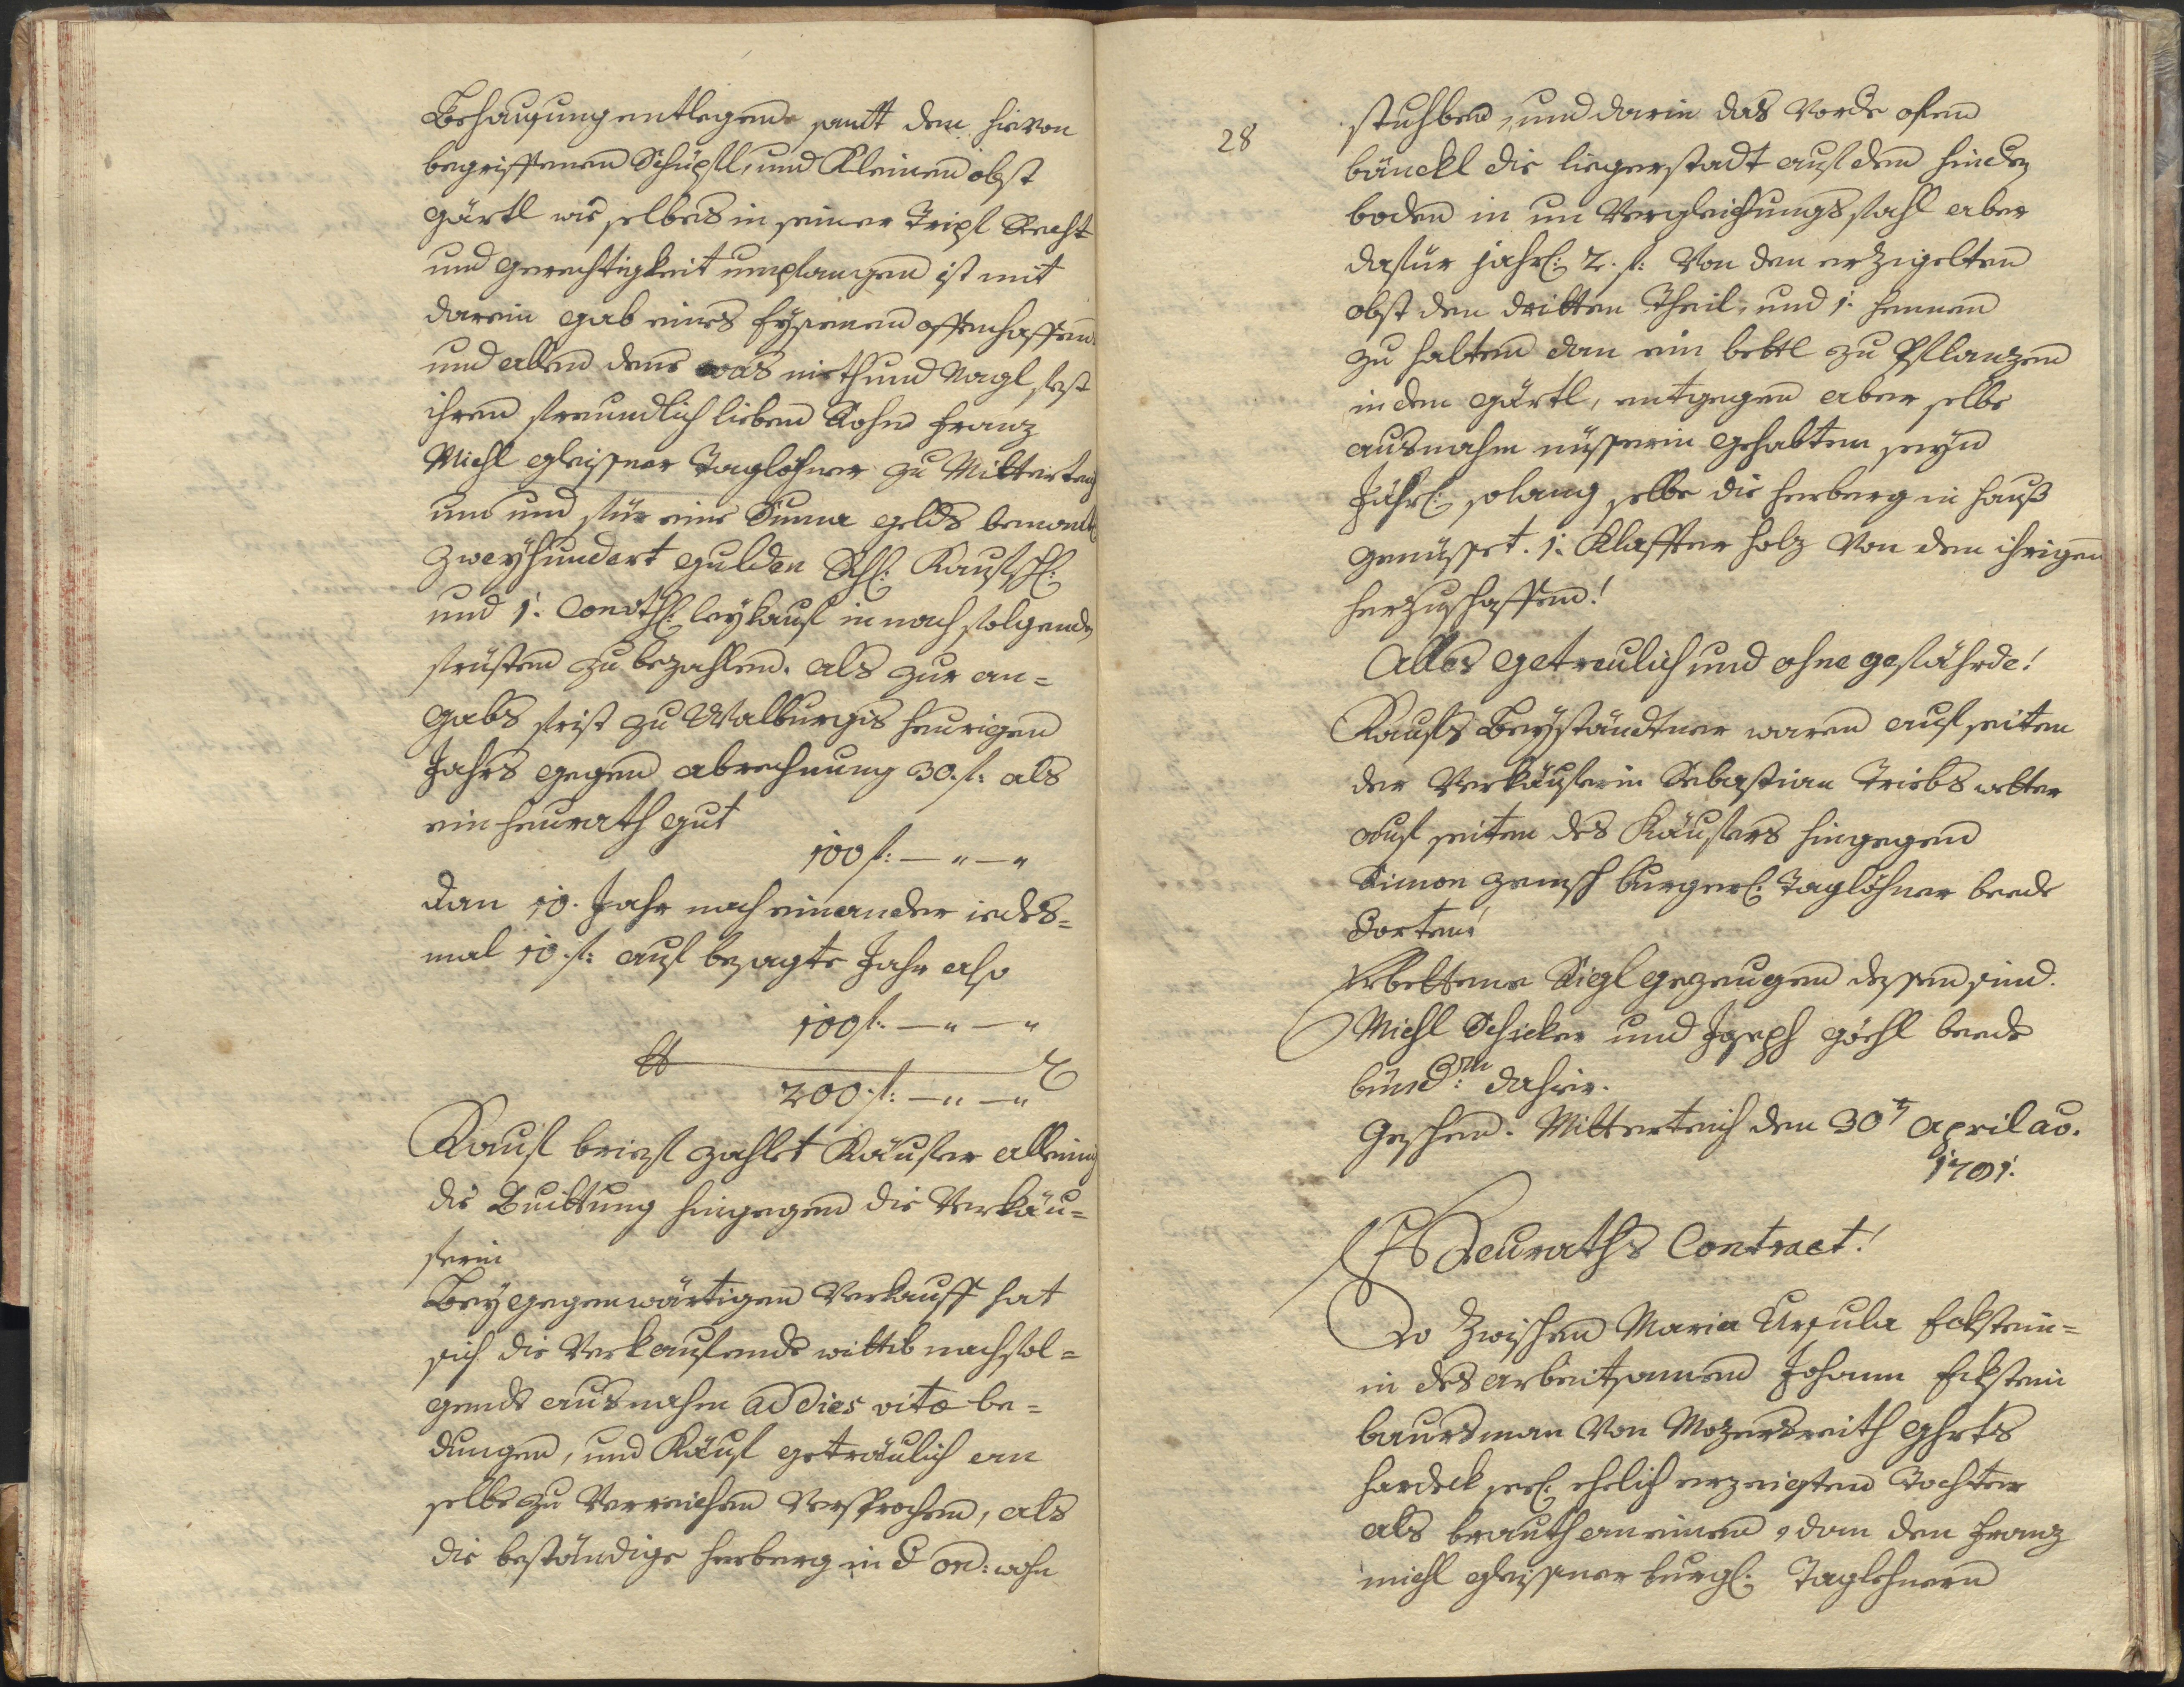 Behausung entlegene samt dem hievon
begriffenen Schüpfl, und Kleinen obst
gärtl wie selbes in seiner Tripl Recht
und gerechtigkeit umpfangen ist mit
darein gab eines Eysenen offenhaffen
und allen dens was nieth und Nagl fest
ihren freundlich lieben Sohn Franz
Michl gleissner Taglöhner zu Mitterteich
um und für eine Suma gelds benantl
zweyhundert gulden Kaufsch:
und 1. Convth: leykauf in nachfolgenden
früsten zu bezahlen. als zur an=
gabs frist zu Walburgis heurigen
Jahrs gegen abrechnung 30. f: als
ein heurath gut
100 f: — " — "
dan 10. Jahr nach einander iedes=
mal 10. f: auf besagte Jahr also
100 f: — " — "
200. f: — " — "
Kauf briefs zahlet Käufer alleinig
die Quittung hingegen die Verkäu=
ferin
Bey gegenwärtigen Verkauff hat
sich die Verkaufende wittib nachfol=
gende ausnahm ad dies vitæ be=
dungen, und Käuf getraulich an
selbe zu Verreichen Versprochen, als
die beständige herberg in d ord: wohn
28
stuhben, und darin das Vorde ofen
bänckl die liegerstadt auf den hindern
boden in un Vergleichungsfahl aber
dafür jährl: 2. f: Von den erzigelten
obst den dritten Theil, und 1. hennen
zu halten dan ein bettl zu Pflanzen
in den gärtl, entgegen aber selbe
ausnahm nüsserin gehalten seyn
Jährl: solang selbe die herberg in hauß
genüsset. 1. Klaffter holz Von dem ihrigen
herzuschaffen!
Alles getreulich und ohne gefährde!
Kaufs Beyständtner waren auf seiten
der Verkäuferin Sebastian Triebswetter
auf seiten des Käufers hingegen
Simon burgerl: Taglöhner beede
dorten!
Erbettene Sigl gezeugen dessen sind.
Michl Schicker und Joseph göhl beede
dahier.
Geschehen. Mitterteich den 30t april ao.
1791.
Heuraths Contract!
So Zwischen Maria Ursula Eckstein=
in des arbeitsamen Johann Eckstein
baursman Von Mozersreith ghrts
hardeck seel: ehelich erzeigten Tochter
als brauth an einen, dan den Franz
michl gleissner burgl: Taglohnern